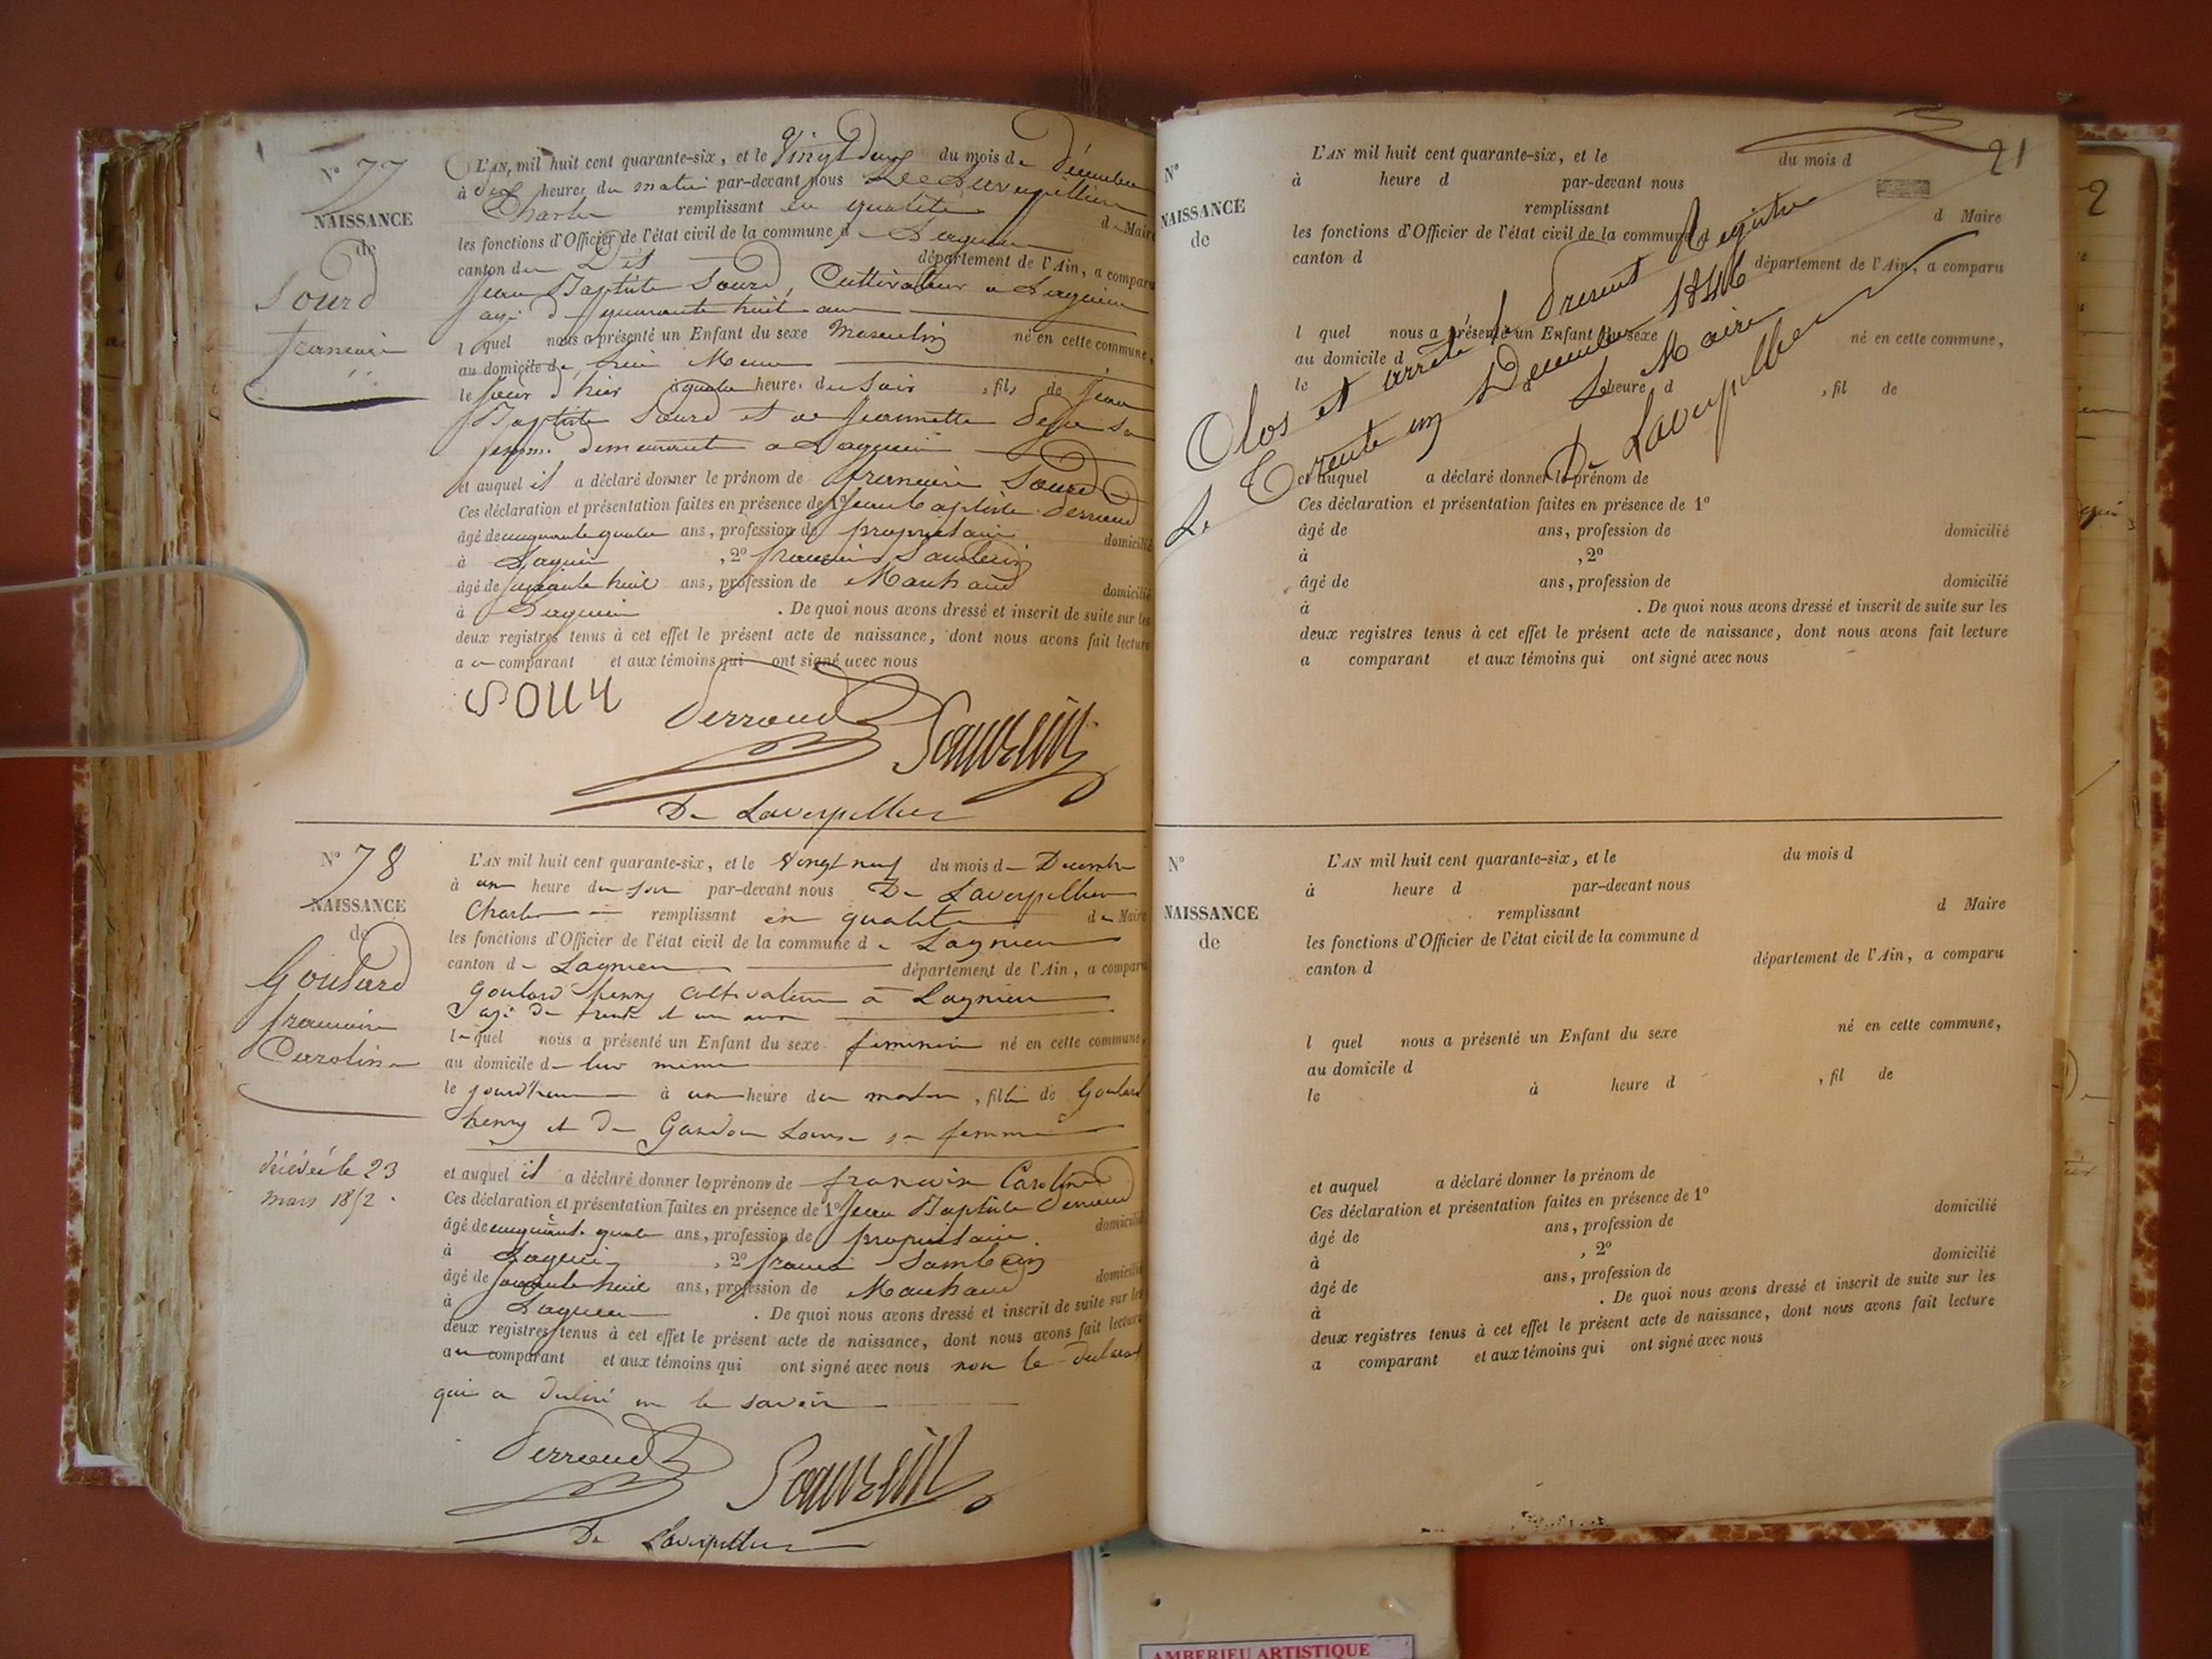 N° 77
NAISSANCE
de
Sourd
françois
L'AN, mil huit cent quarante-six, et le Vingt deux du mois de Décembre
à dix heures du matin par-devant nous De Laverpillière
Charles remplissant en qualité de Maire
les fonctions d'Officier de l'état civil de la commune de Lagnieu
canton du Dit département de l'Ain, a comparu
Jean Baptiste Sourd, Cultivateur a Lagnieu
agé de quarante huit ans
lequel nous a présenté un Enfant du sexe Masculin né en cette commune,
au domicile de lui Meme
le jour d'hier à quatre heures du soir, fils de Jean
Baptiste Sourd et de Jeannette sa
femme demeurant a Lagnieu
et auquel il a déclaré donner le prénom de françois Sourd
Ces déclaration et présentation faites en présence de 1° Jean baptiste Derraud
âgé de cinquante quatre ans, profession de propriétaire domicilié
à Lagnieu, 2° françois Sambein
âgé de soixante huit ans, profession de Marchand domicilié
à Lagnieu. De quoi nous avons dressé et inscrit de suite sur les
deux registres tenus à cet effet le présent acte de naissance, dont nous avons fait lecture
au comparant et aux témoins qui ont signé avec nous
SOUR
Derraud
De Laverpillier
N° 78
NAISSANCE
de
Goutard
françoise
Carroline
décédée le 23
mars 1852.
L'AN mil huit cent quarante-six, et le Vingt neuf du mois de Decembre
à une heure du soir par-devant nous De Laverpillier
Charles remplissant en qualité de Maire
les fonctions d'Officier de l'état civil de la commune de Lagnieu
canton de Lagnieu département de l'Ain, a comparu
Goutard henry cultivateur a Lagnieu
agé de trente et un ans
lequel nous a présenté un Enfant du sexe feminin né en cette commune,
au domicile de lui meme
le jourd'hui à une heure du matin, fille de Goutard
henry et de Louise sa femme
et auquel il a déclaré donner les prénoms de francoise Caroline
Ces déclaration et présentation faites en présence de 1° Jean Baptiste Derraud
âgé de cinquante quatre ans, profession de propriétaire domicilié
à Lagnieu, 2° francois Sambein
âgé de soixante huit ans, profession de Marchand domicilié
à Lagnieu. De quoi nous avons dressé et inscrit de suite sur les
deux registres tenus à cet effet le présent acte de naissance, dont nous avons fait lecture
au comparant et aux témoins qui ont signé avec nous non le declarant
qui a déclaré ne le savoir
Derraud
De Laverpillier
21
N°
NAISSANCE
de
L'AN mil huit cent quarante-six, et le du mois d
à heure d par-devant nous
remplissant d Maire
les fonctions d'Officier de l'état civil de la commune d
canton d département de l'Ain, a comparu
l quel nous a présenté un Enfant du sexe né en cette commune,
au domicile d
le à heure d , fil de
Clos et arrêté le present Registre
Le Trente un Decembre 1846
Le Maire
De Laverpillier
et auquel a déclaré donner le prénom de
Ces déclaration et présentation faites en présence de 1°
âgé de ans, profession de domicilié
à , 2°
âgé de ans, profession de domicilié
à . De quoi nous avons dressé et inscrit de suite sur les
deux registres tenus à cet effet le présent acte de naissance, dont nous avons fait lecture
a comparant et aux témoins qui ont signé avec nous
N°
NAISSANCE
de
L'AN mil huit cent quarante-six, et le du mois d
à heure d par-devant nous
remplissant d Maire
les fonctions d'Officier de l'état civil de la commune d
canton d département de l'Ain, a comparu
l quel nous a présenté un Enfant du sexe né en cette commune,
au domicile d
le à heure d , fil de
et auquel a déclaré donner le prénom de
Ces déclaration et présentation faites en présence de 1°
âgé de ans, profession de domicilié
à , 2°
âgé de ans, profession de domicilié
à . De quoi nous avons dressé et inscrit de suite sur les
deux registres tenus à cet effet le présent acte de naissance, dont nous avons fait lecture
a comparant et aux témoins qui ont signé avec nous
2
AMBERIEU ARTISTIQUE